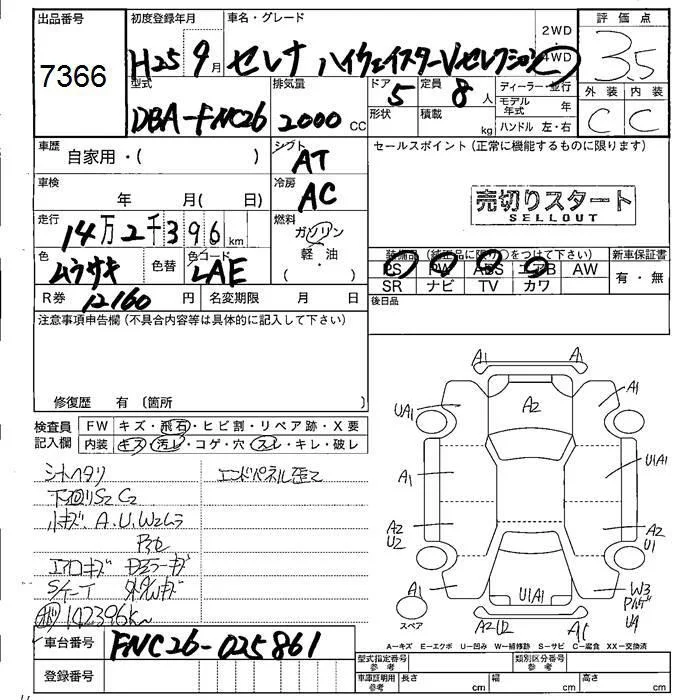 出品番号 初度登録年月 車名・グレード 評価点
7366 H25 9月 セレナ ハイウェイスターV.セレクション 2WD 4WD 3.5
型式 排気量 ドア 定員 ディーラー・並行 外装 内装
DBA-FNC26 2000cc 5 8人 モデル年式 年 C C
形状 積載 kg ハンドル 左・右
車歴 自家用・( ) シフト AT セールスポイント(正常に機能するものに限ります)
車検 年 月( 日) 冷房 AC 売切りスタート
SELLOUT
走行 14万2千396km 燃料 ガソリン
軽・油
( )
色 ムラサキ 色替 色コード LAE 装備品(純正品に限り○をつけて下さい) 新車保証書
PS PW ABS エアB AW 有・無
SR ナビ TV カワ
R券 12160円 名変期限 月 日 後日品
注意事項申告欄(不具合内容等は具体的に記入して下さい)
修復歴 有(箇所
検査員記入欄 FW キズ・飛石・ヒビ割・リペア跡・X要
内装 キズ・汚レ・コゲ・穴・スレ・キレ・破レ
シートヘタリ エンドパネル歪て
下廻りS2C2
小キズ.A.U.W2ムラ
エアロキズ ドアミラーキズ
142396K~
A1 A1
A2 A1
UA1
A1 U1A1
A2 A2
U2 U1
A1 U1A1 W3
U4
スペア A2U2 A1
A-キズ E-エクボ U-凹み W-補修跡 S-サビ C-腐食 XX-交換済
車台番号 FNC26-025861
登録番号
型式指定番号 参考 類別区分番号 参考
車庫証明用 参考 長さ cm 幅 cm 高さ cm